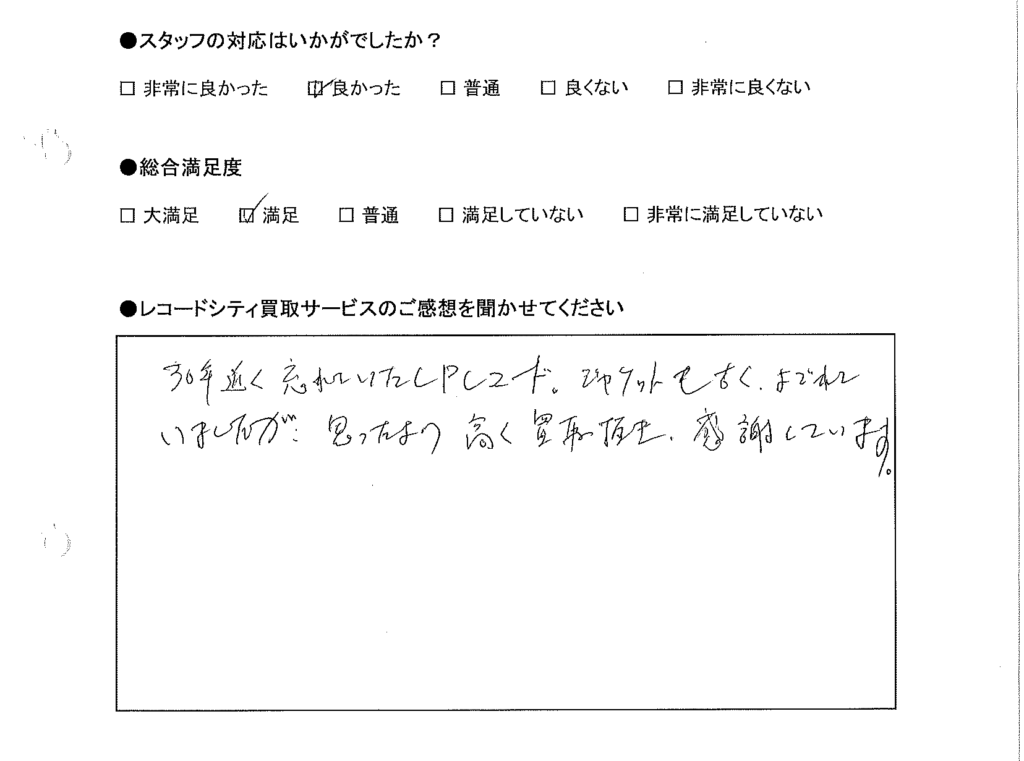 ●スタッフの対応はいかがでしたか？
□ 非常に良かった ☑ 良かった □ 普通 □ 良くない □ 非常に良くない
●総合満足度
□ 大満足 ☑ 満足 □ 普通 □ 満足していない □ 非常に満足していない
●レコードシティ買取サービスのご感想を聞かせてください
30年近く忘れていたLPレコード。ジャケットも古く、よごれて
いましたが、思ったより高く買取 感謝しています。